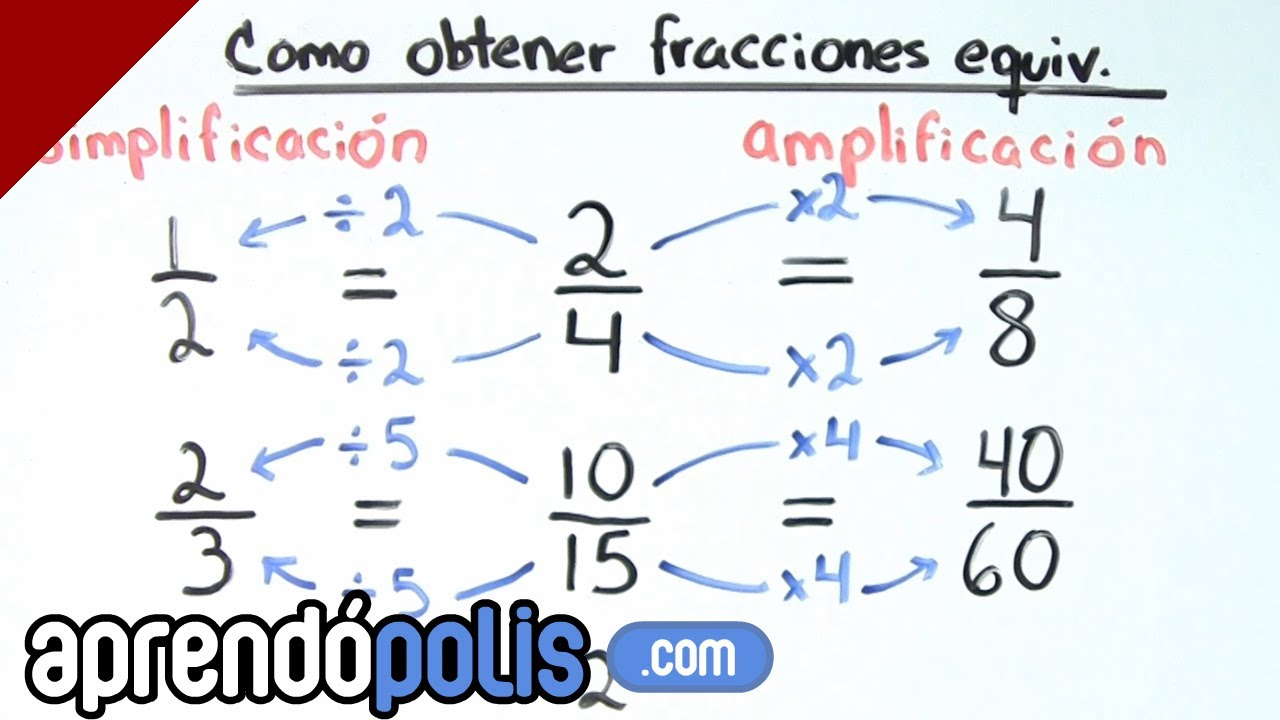 Como obtener fracciones equiv.
simplificación amplificación
÷2 ×2
1/2 = 2/4 = 4/8
÷2 ×2
÷5 ×4
2/3 = 10/15 = 40/60
÷5 ×4
aprendópolis .com
2